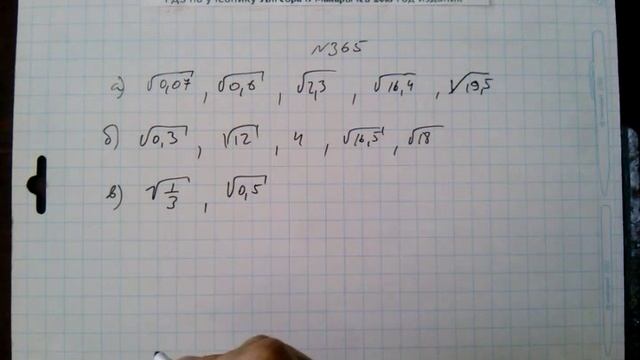 №365
а) √0,07 , √0,6 , √2,3 , √16,4 , √19,5
б) √0,3 , √12 , 4 , √16,5 , √18
в) √1/3 , √0,5